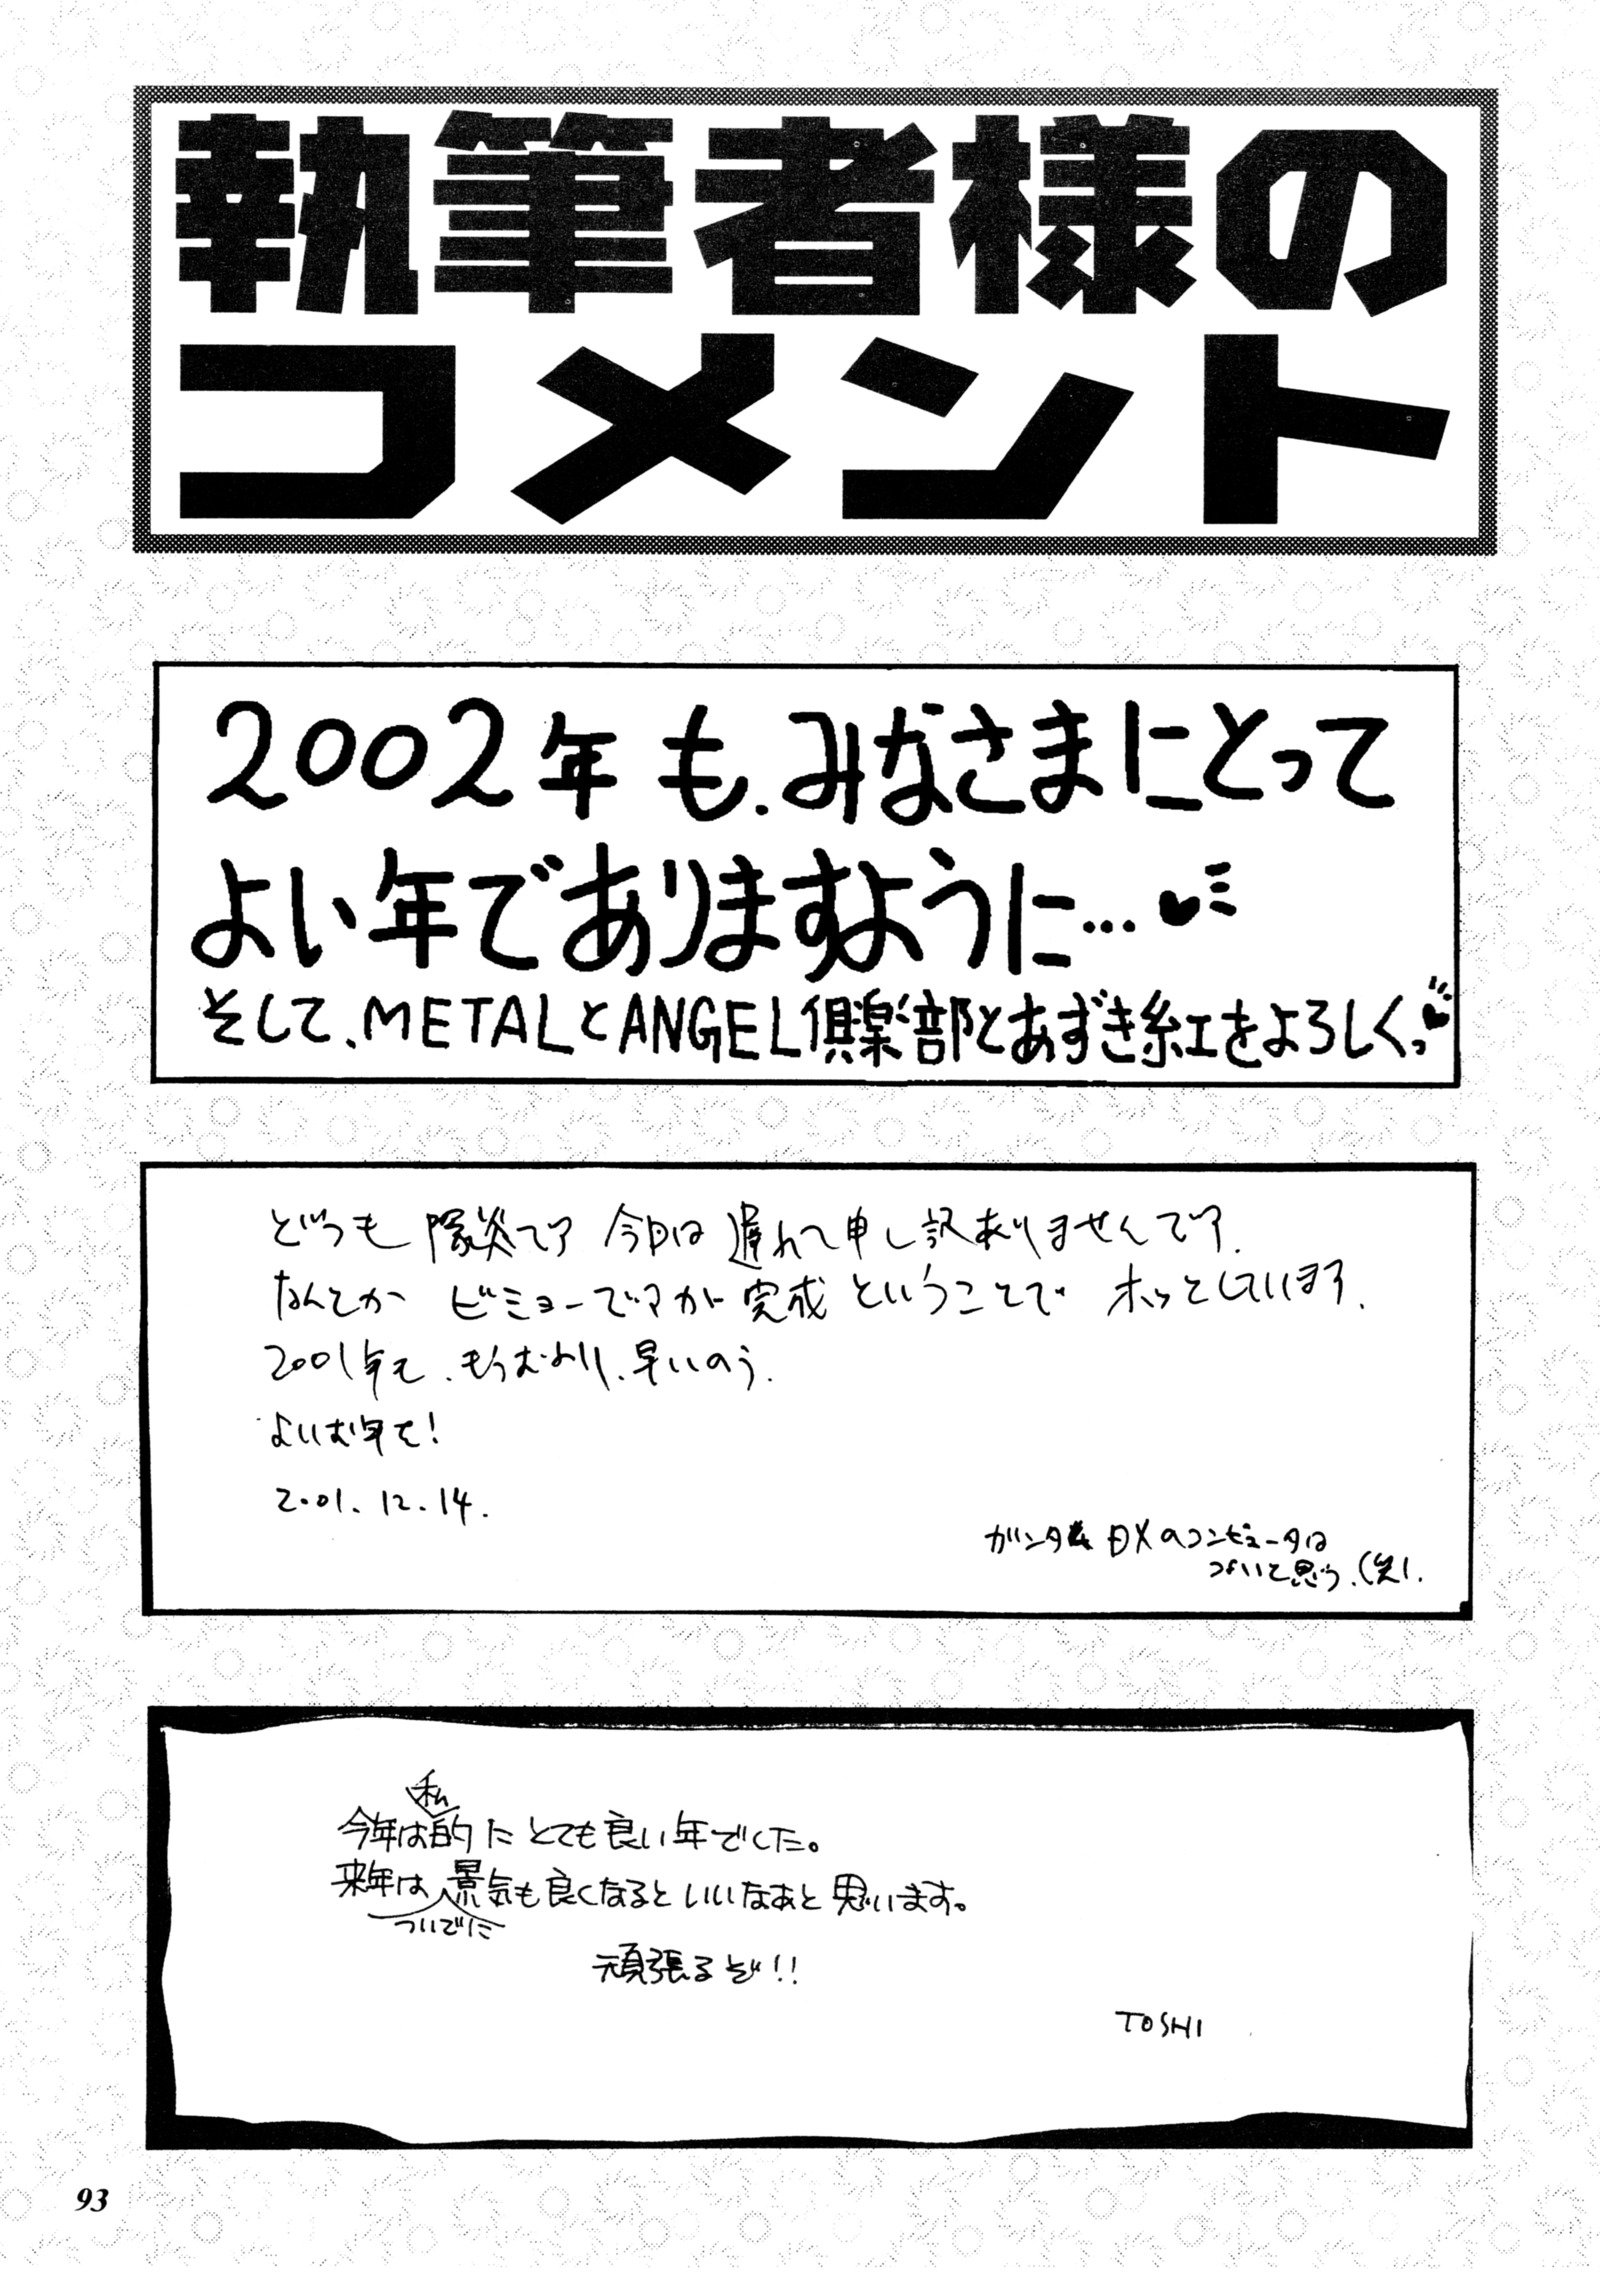 執筆者様の
コメント
2002年も、みなさまにとって
よい年でありますように…♥
そして、METALとANGEL倶楽部とあずき紅をよろしくっ♥
どうも 陽炎です 今回は遅れて申し訳ありませんです.
なんとか ビミョーですが完成ということで ホッとしています.
2001年も、もうおわり、早いのう.
よいお年を!
2001.12.14.
DXのコンピュータは
つよいと思う.(笑).
私
今年は的にとても良い年でした。
来年は景気も良くなるといいなあと思います。
ついでに
頑張るぞ!!
TOSHI
93